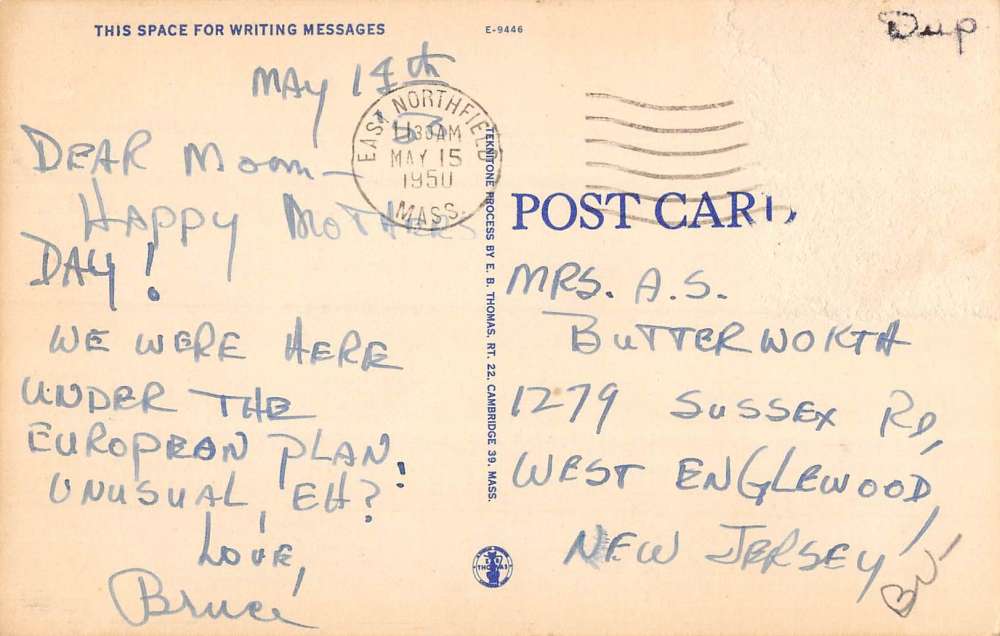 THIS SPACE FOR WRITING MESSAGES
E-9446
Dup
MAY 14th
EAST NORTHFIELD
1130AM
MAY 15
1950
MASS.
DEAR Mom—
HAPPY MOTHERS
DAY!
WE WERE HERE
UNDER THE
EUROPEAN PLAN!
UNUSUAL, EH?
LOVE,
Bruce
TEKNITONE PROCESS BY E. B. THOMAS, RT. 22, CAMBRIDGE 39, MASS.
THOMAS
POST CARD
MRS. A.S.
BUTTERWORTH
1279 SUSSEX RD,
WEST ENGLEWOOD,
NEW JERSEY